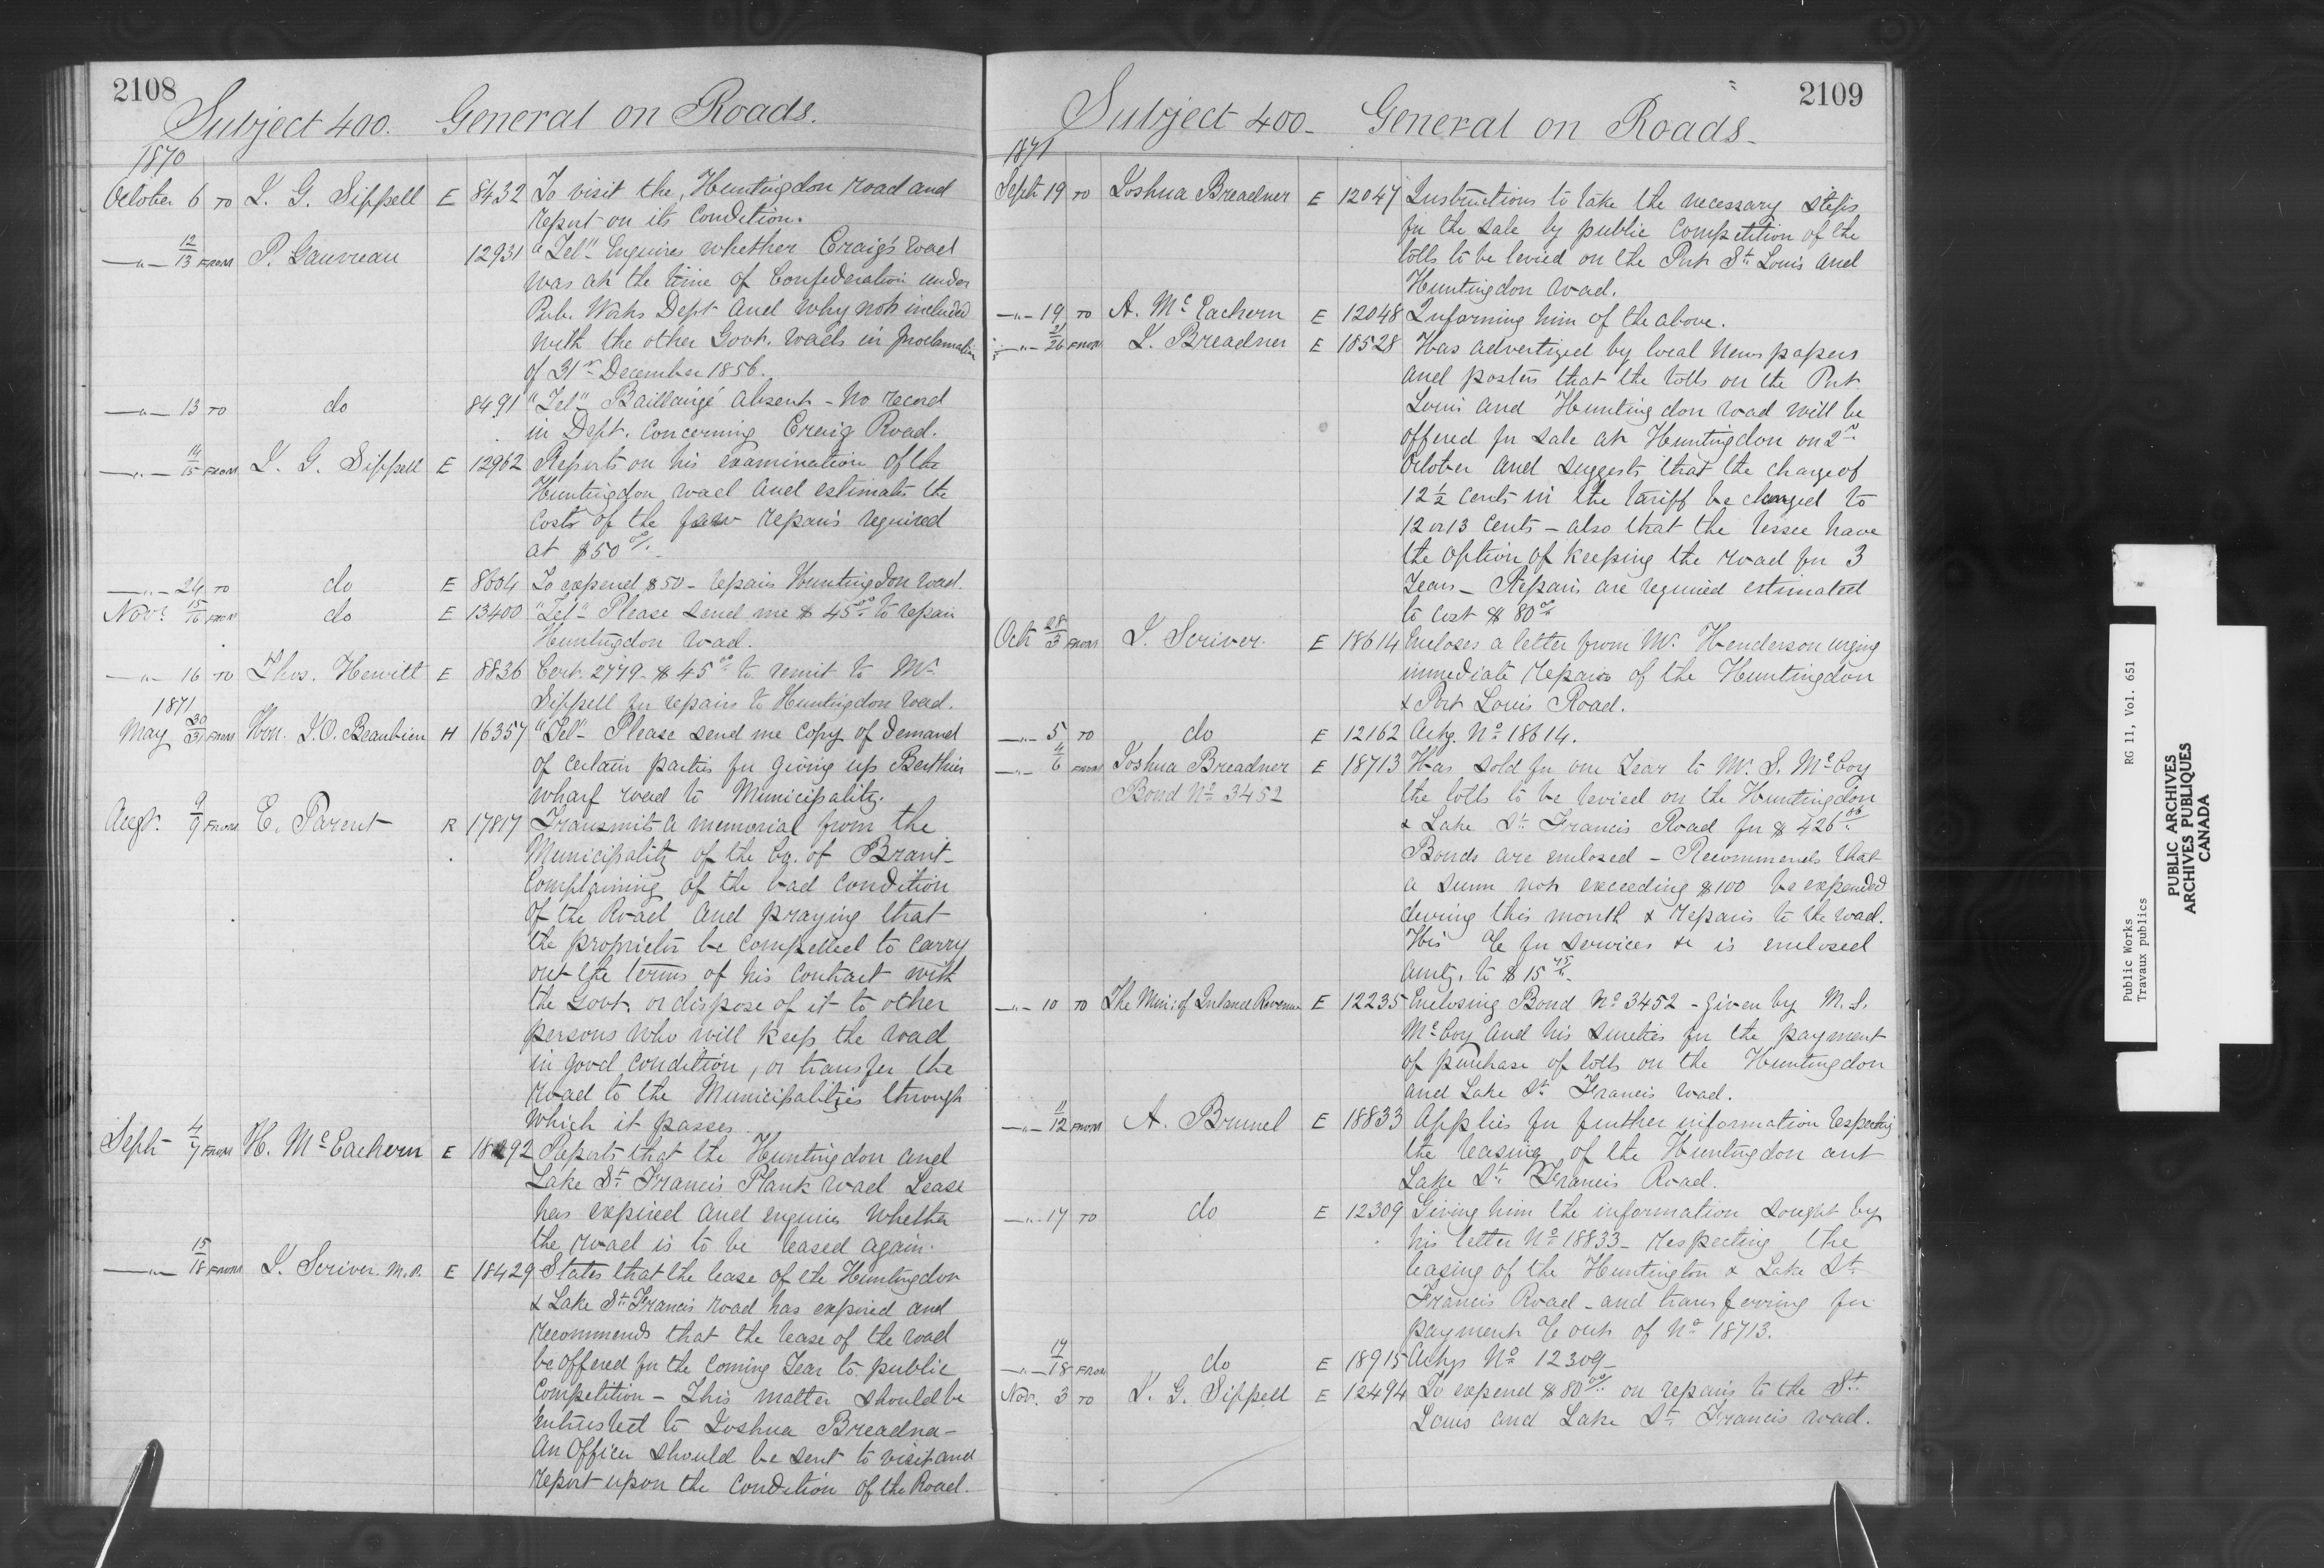 2108
Subject 400. General on Roads.
1870
October 6 TO J. G. Sippell E 8432 To visit the Huntingdon road and
report on its condition.
—"— 12/13 FROM P. Gauvreau 12931 "Tel" Enquires whether Craig's road
was at the time of Confederation under
Pub. Works Dept and why not included
with the other Govt. roads in proclamation
of 31st December 1856.
—"— 13 TO do 8491 "Tel" Baillairgé absent - No record
in Dept. concerning Craig Road.
—"— 14/15 FROM J. G. Sippell E 12962 Reports on his examination of the
Huntingdon road and estimates the
costs of the few repairs required
at $50 00/.
—"— 24 TO do E 8604 To expend $50 - repairs Huntingdon road.
Novr. 15/16 FROM do E 13400 "Tel" Please send me $45 00 to repair
Huntingdon road.
—"— 16 TO Thos. Hewitt E 8836 Cert. 2779 - $45 00 to remit to Mr
Sippell for repairs to Huntingdon road.
1871
May 30/31 FROM Hon. J. O. Beaubien H 16357 "Tel" Please send me copy of demand
of certain parties for giving up Berthier
wharf road to Municipality.
Augt. 9/9 FROM E. Parent R 17817 Transmits a memorial from the
Municipality of the Co. of Brant -
complaining of the bad condition
of the Road and praying that
the proprietor be compelled to carry
out the terms of his contract with
the Govt. or dispose of it to other
persons who will keep the road
in good condition, or transfer the
road to the Municipalities through
which it passes.
Sept 4/7 FROM H. McEachern E 18292 Reports that the Huntingdon and
Lake St. Francis Plank road Lease
has expired and enquires whether
the road is to be leased again.
—"— 15/18 FROM J. Scriver M.P. E 18429 States that the lease of the Huntingdon
& Lake St. Francis road has expired and
recommends that the lease of the road
be offered for the coming Year to public
Competition - This matter should be
entrusted to Joshua Breadna -
An Officer should be sent to visit and
report upon the condition of the Road.
2109
Subject 400 - General on Roads -
1871
Sept 19 TO Joshua Breadner E 12047 Instructions to take the necessary steps
for the sale by public Competition of the
tolls to be levied on the Port St. Louis and
Huntingdon road.
—"— 19 TO A. McEachern E 12048 Informing him of the above.
—"— 21/26 FROM J. Breadner E 18528 Has advertized by local Newspapers
and posters that the tolls on the Port
Louis and Huntingdon road will be
offered for sale at Huntingdon on 2nd
October and suggests that the charge of
12 1/2 cents in the tariff be changed to
12 or 13 cents - also that the lessee have
the option of keeping the road for 3
Years - Repairs are required estimated
to cost $80 00
Oct 28/3 FROM J. Scriver. E 18614 Encloses a letter from Mr. Henderson urging
immediate repairs of the Huntingdon
& Port Louis Road.
—"— 5 TO do E 12162 Ackg. No 18614.
—"— 4/6 FROM Joshua Breadner E 18713 Has sold for one Year to Mr. S. McCoy
Bond No 3452 the tolls to be levied on the Huntingdon
& Lake St. Francis Road for $426
Bonds are enclosed - Recommends that
a sum not exceeding $100 be expended
during this month & repairs to the road.
His a/c for services &c is enclosed
amtg. to $15
—"— 10 TO The Min: of Inland Revenue E 12235 Enclosing Bond No 3452 - given by M. S.
McCoy and his sureties for the payment
of purchase of tolls on the Huntingdon
and Lake St. Francis road.
—"— 11/12 FROM A. Brunel E 18833 Applies for further information respecting
the leasing of the Huntingdon ant
Lake St. Francis Road.
—"— 17 TO do E 12309 Giving him the information sought by
his letter No 18833 - respecting the
leasing of the Huntington & Lake St.
Francis Road - and transferring for
payment a/c out of No 18713.
—"— 17/18 FROM do E 18915 Ackgs No 12309 -
Nov. 3 TO J. G. Sippell E 12494 To expend $80 00/ on repairs to the St.
Louis and Lake St. Francis road.
Public Works RG 11, Vol. 651
Travaux publics
PUBLIC ARCHIVES
ARCHIVES PUBLIQUES
CANADA